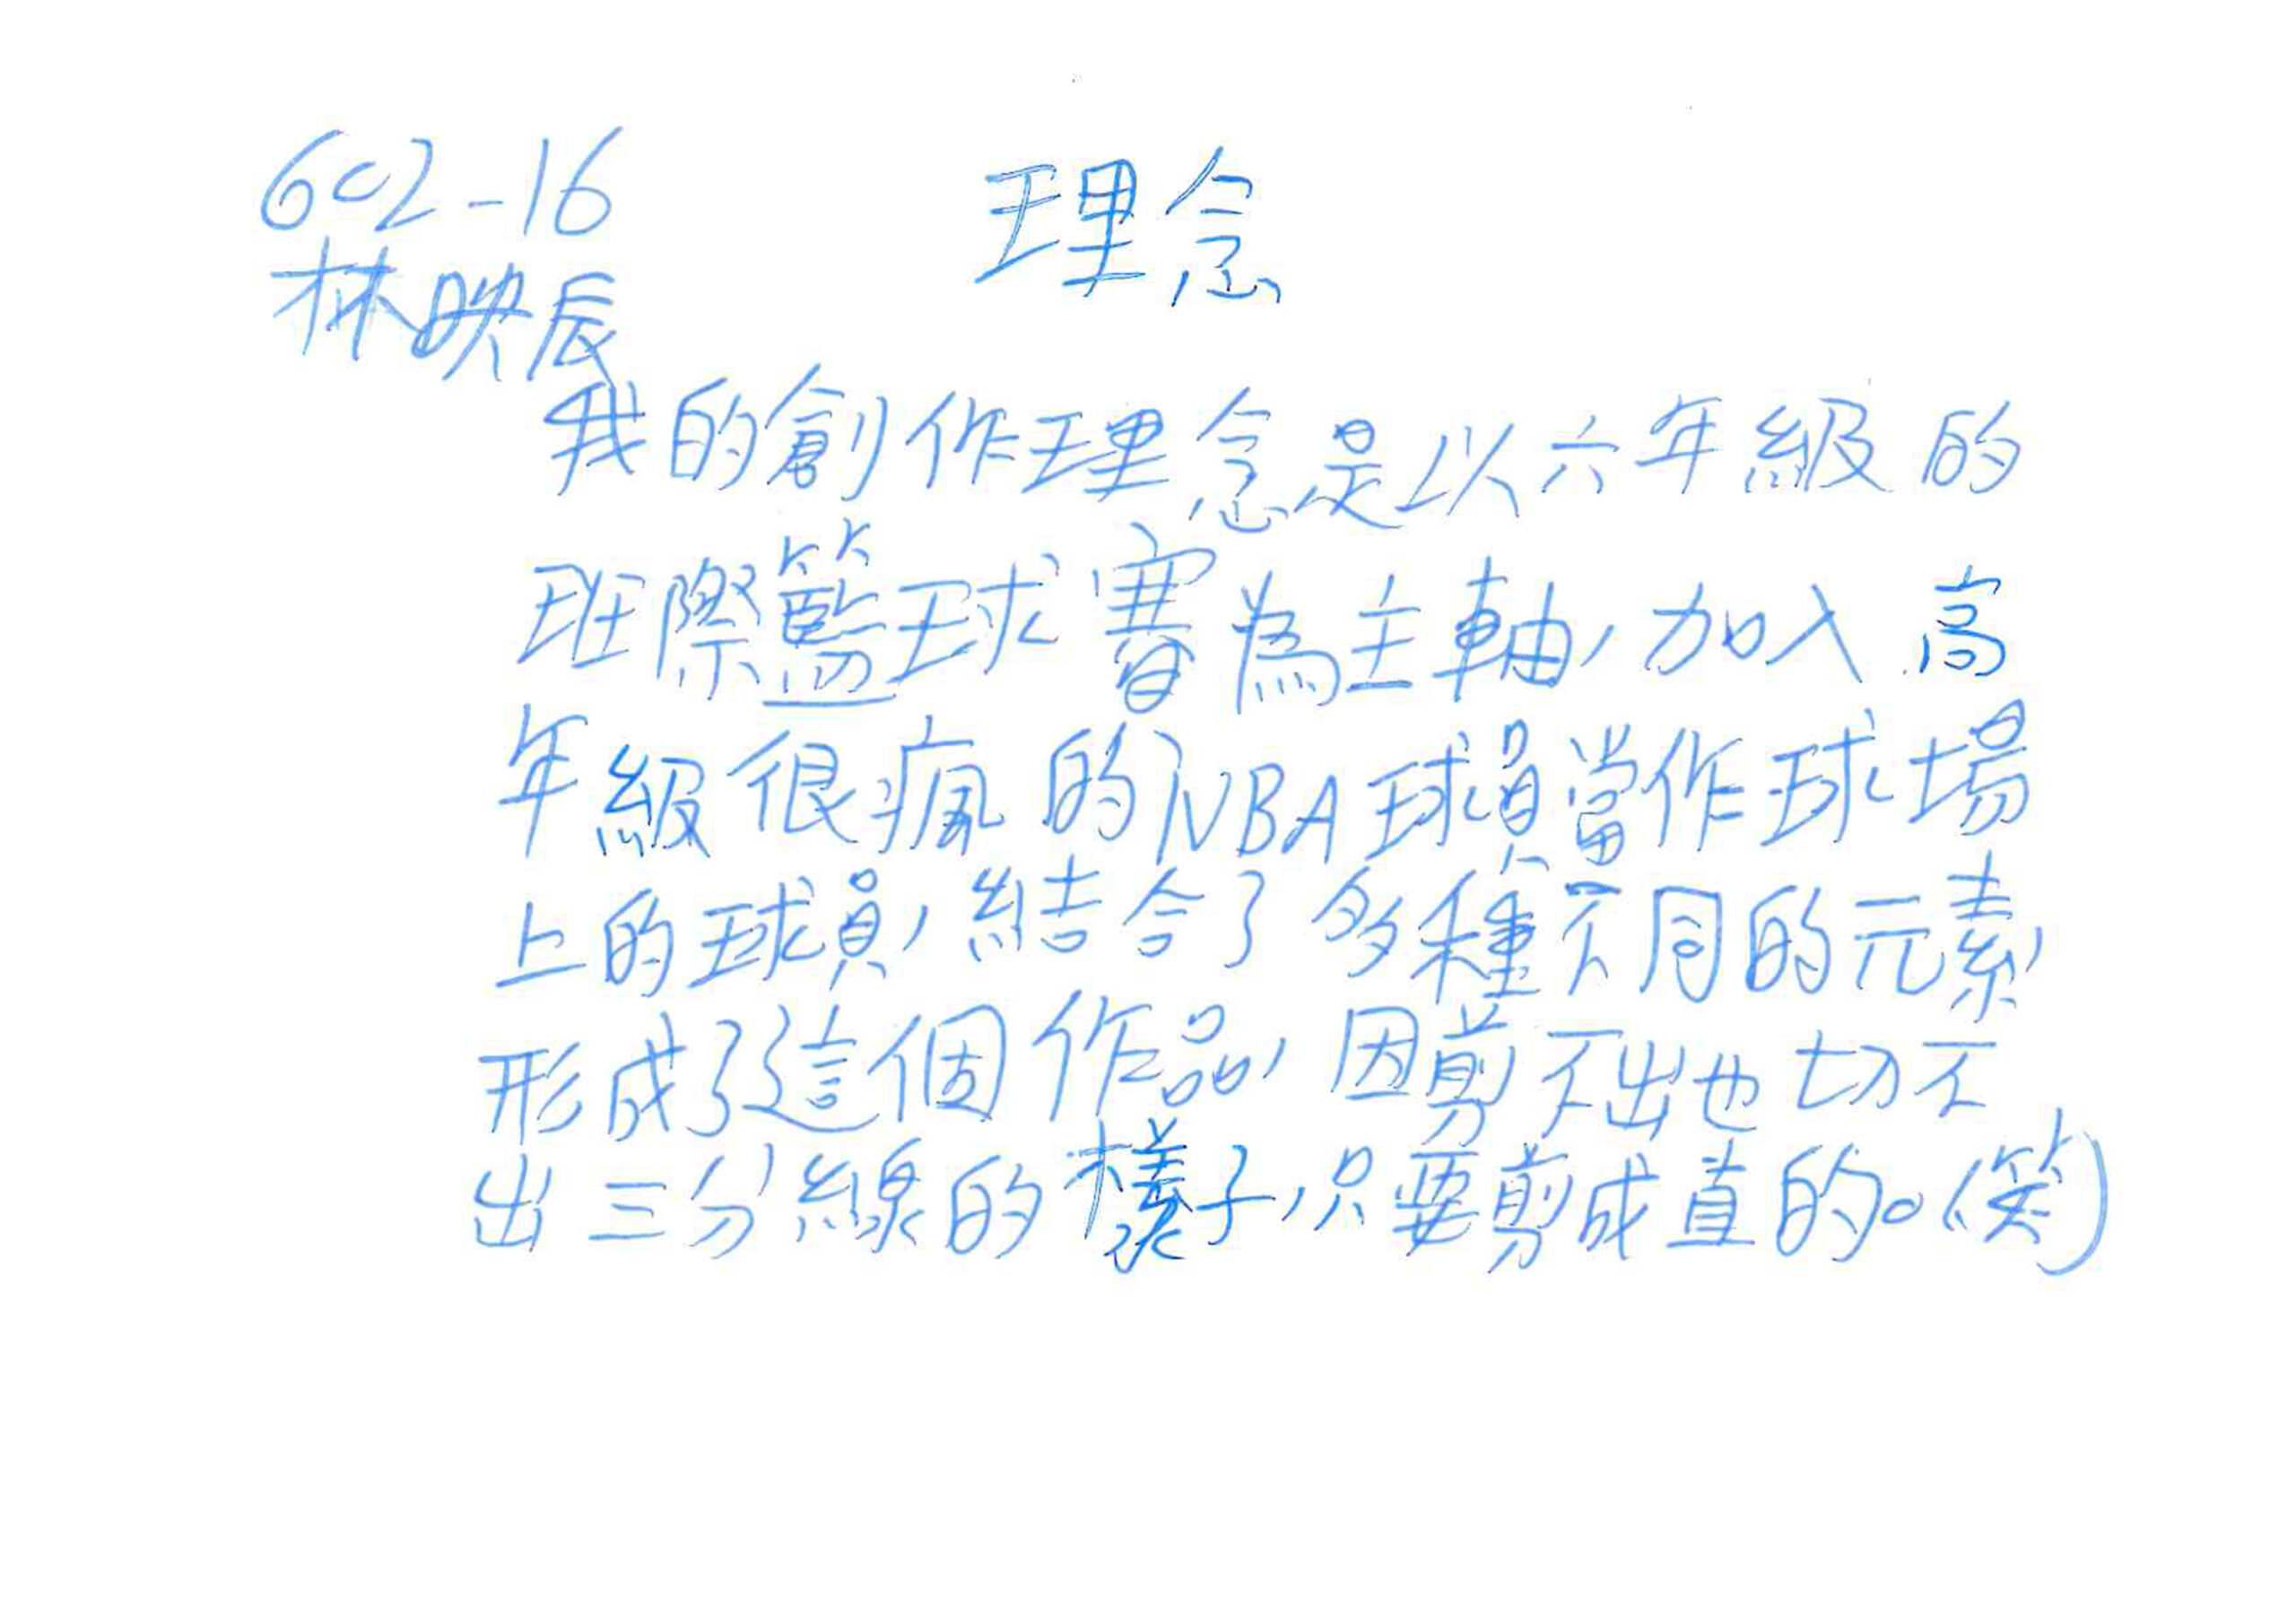 602-16
理念
林映辰
我的創作理念是以六年級的
班際籃球賽為主軸,加入高
年級很瘋的NBA球員當作球場
上的球員,結合了多種不同的元素,
形成了這個作品,因剪不出也切不
出三分線的樣子,只要剪成直的。(笑)